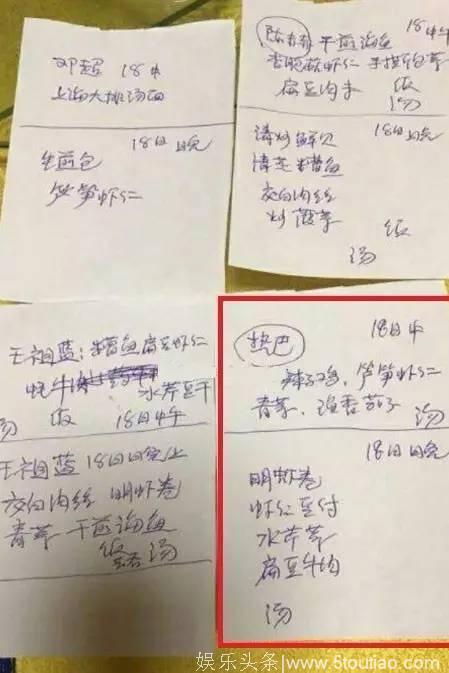 邓超 18中
上海大排汤面
18日晚
生煎包
笋虾仁
18中午
干煎海鱼
虾仁
扁豆肉末 饭
汤
18日晚
清炒鲜贝
清蒸糟鱼
茭白肉丝
炒菠菜 饭
汤
王祖蓝:糟鱼扁豆虾仁
牦牛 水芹豆干
汤 饭 18日中午
王祖蓝 18日晚上
茭白肉丝 明虾卷
青菜 干煎海鱼
饭 汤
热巴 18日中
辣子鸡、笋虾仁
青菜、鱼香茄子 汤
18日晚
明虾卷
虾仁豆付
水芹菜
扁豆牛肉
汤
娱乐头条|www.5toutiao.com